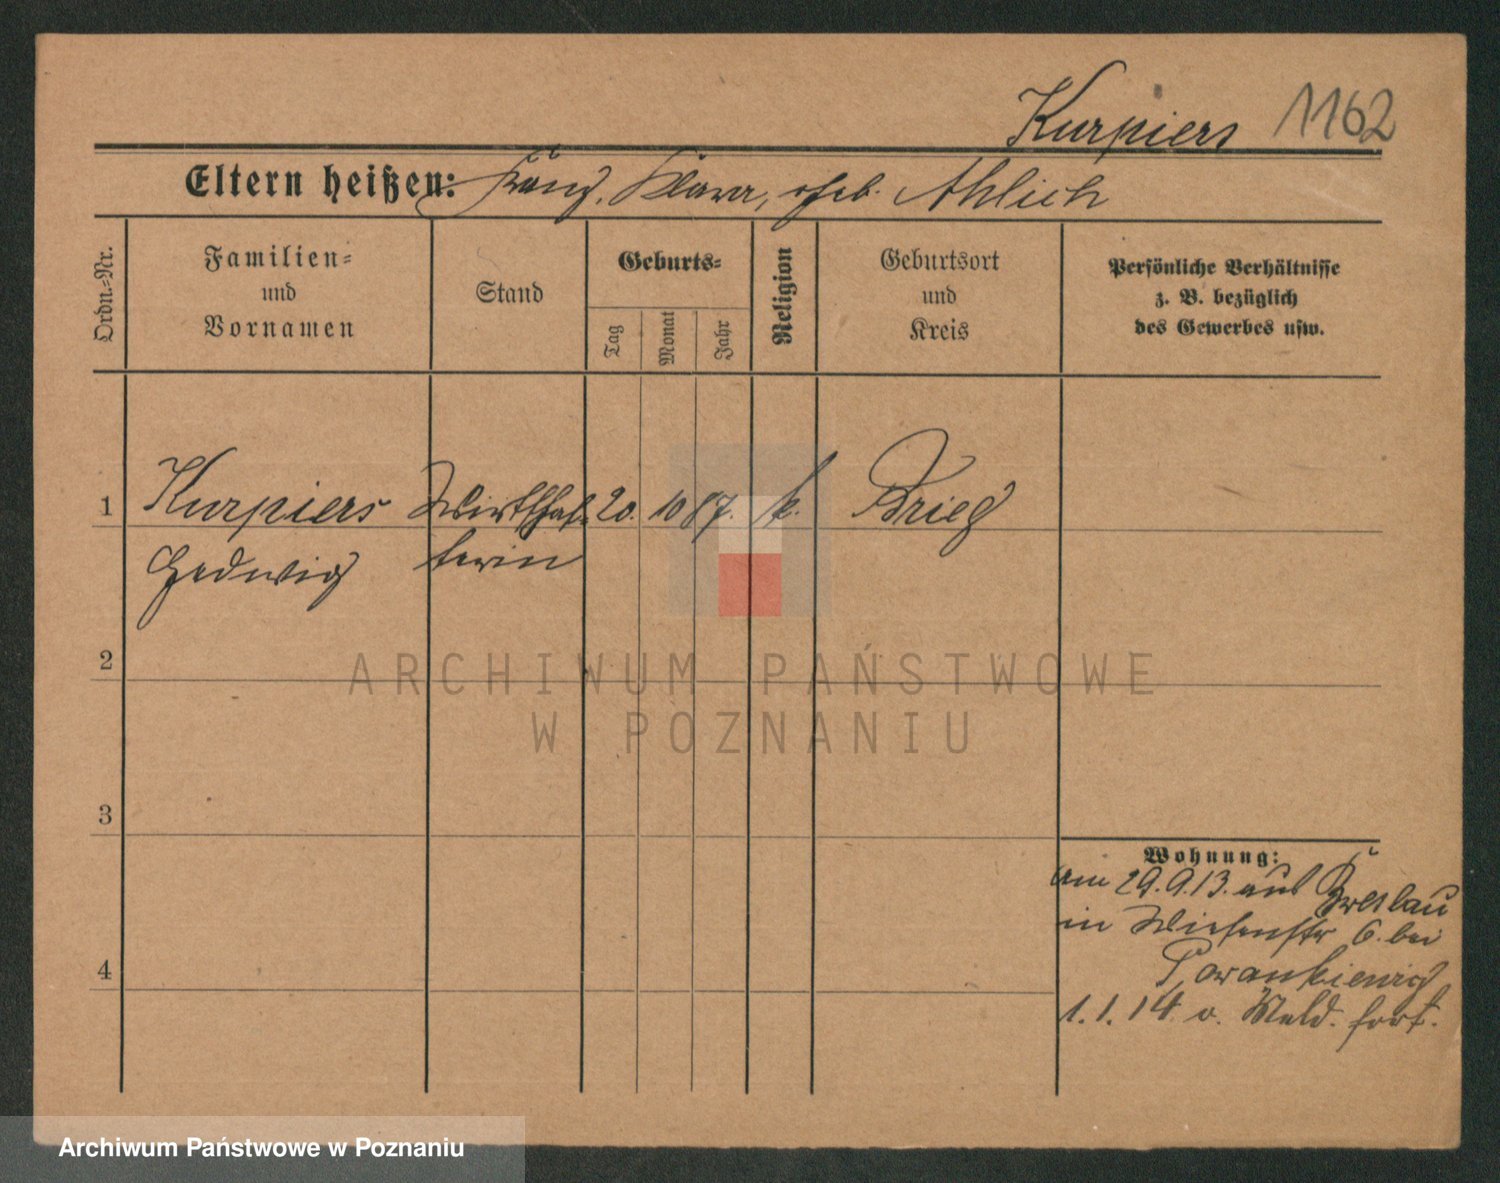 Kurpiers 1162
Eltern heißen: Franz, Klara, geb. Ahlich
Ordn.=Nr.
Familien=
und
Vornamen
Stand
Geburts=
Tag
Monat
Jahr
Religion
Geburtsort
und
Kreis
Persönliche Verhältnisse
z. B. bezüglich
des Gewerbes usw.
1 Kurpiers 20. 10 87. k. Brieg
Hedwig
2
3
4
Wohnung:
am 29.9.13. aus Breslau
in Wiesenstr 6. bei
1.1.14 o. Meld. fort.
ARCHIWUM PAŃSTWOWE
W POZNANIU
Archiwum Państwowe w Poznaniu